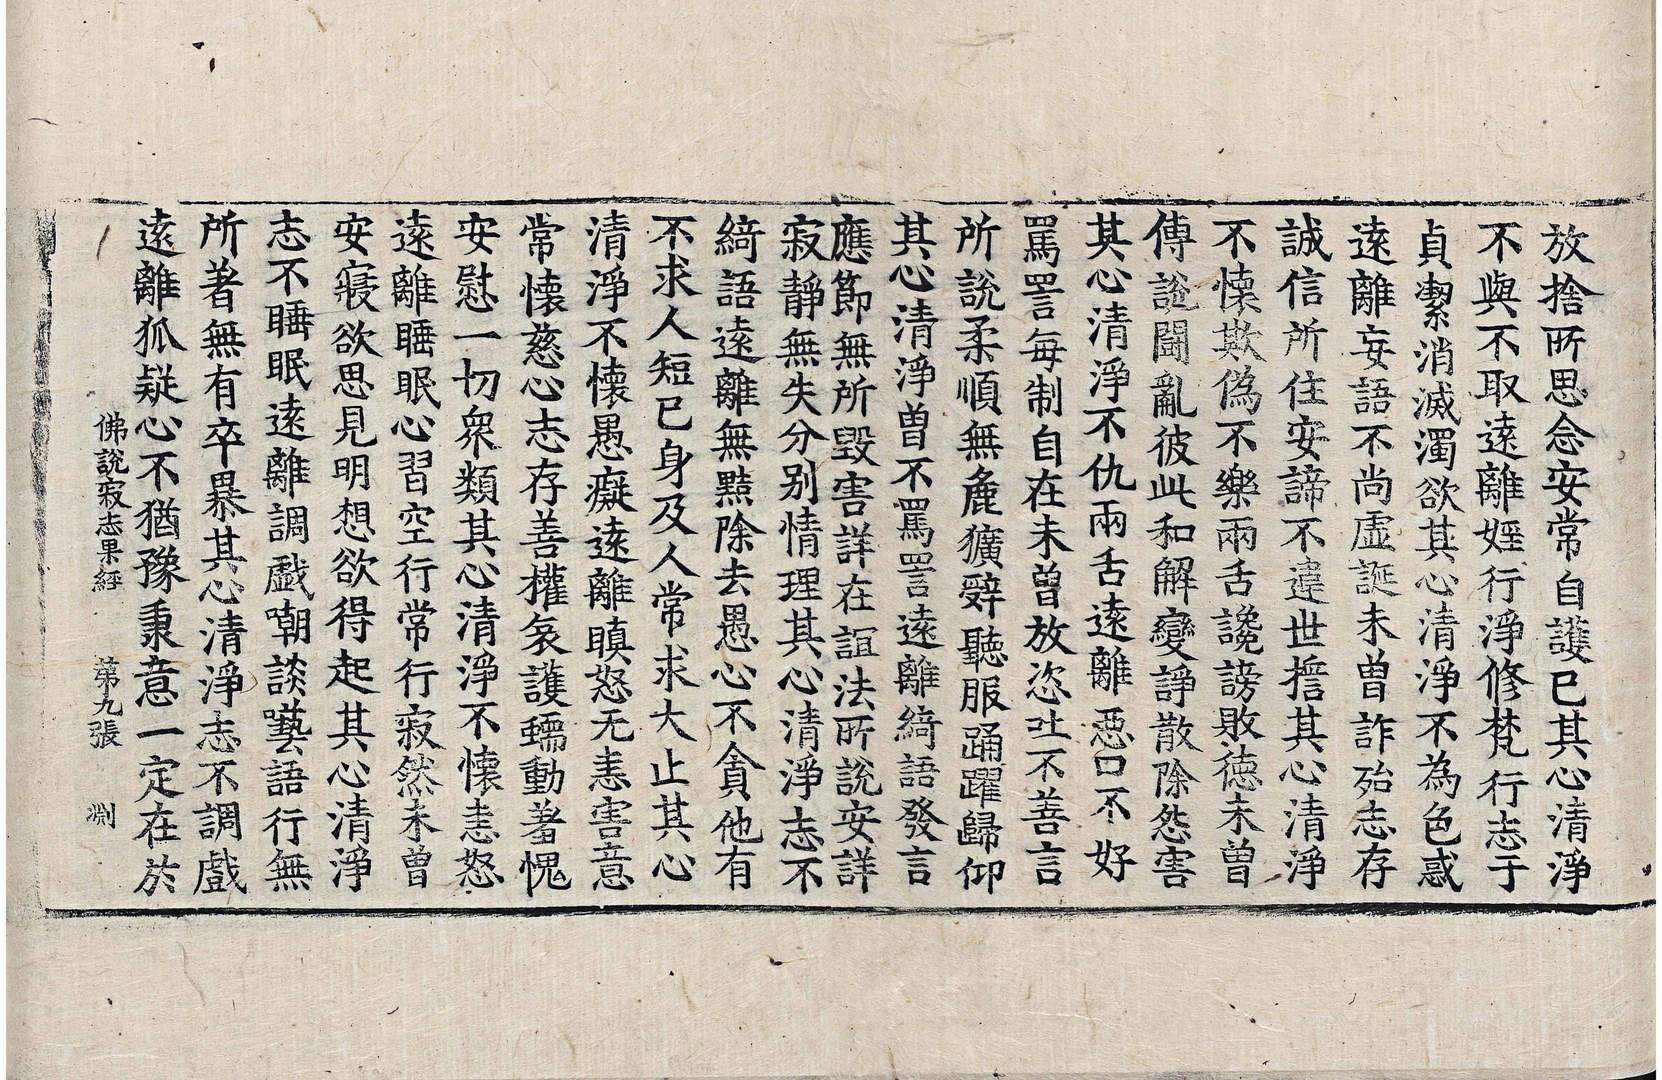 放捨所思念安常自護已其心清淨
不與不取遠離婬行淨修梵行志于
貞潔消滅濁欲其心清淨不為色惑
遠離妄語不尚虛誕未曾詐殆志存
誠信所住安諦不違世擔其心清淨
不懷欺偽不樂兩舌讒謗敗德未曾
傳說鬪亂彼此和解變諍散除怨害
其心清淨不仇兩舌遠離惡口不好
罵詈每制自在未曾放恣吐不善言
所說柔順無麁獷辭聽服踊躍歸仰
其心清淨曾不罵詈遠離綺語發言
應節無所毀害詳在誼法所說安詳
寂靜無失分別情理其心清淨志不
綺語遠離無黠除去愚心不貪他有
不求人短己身及人常求大止其心
清淨不懷愚癡遠離瞋怒无恚害意
常懷慈心志存善權哀護蠕動羞愧
安慰一切衆類其心清淨不懷恚怒
遠離睡眠心習空行常行寂然未曾
安寢欲思見明想欲得起其心清淨
志不睡眠遠離調戲嘲談囈語行無
所著無有卒暴其心清淨志不調戲
遠離狐疑心不猶豫秉意一定在於
佛說寂志果經 第九張 淵